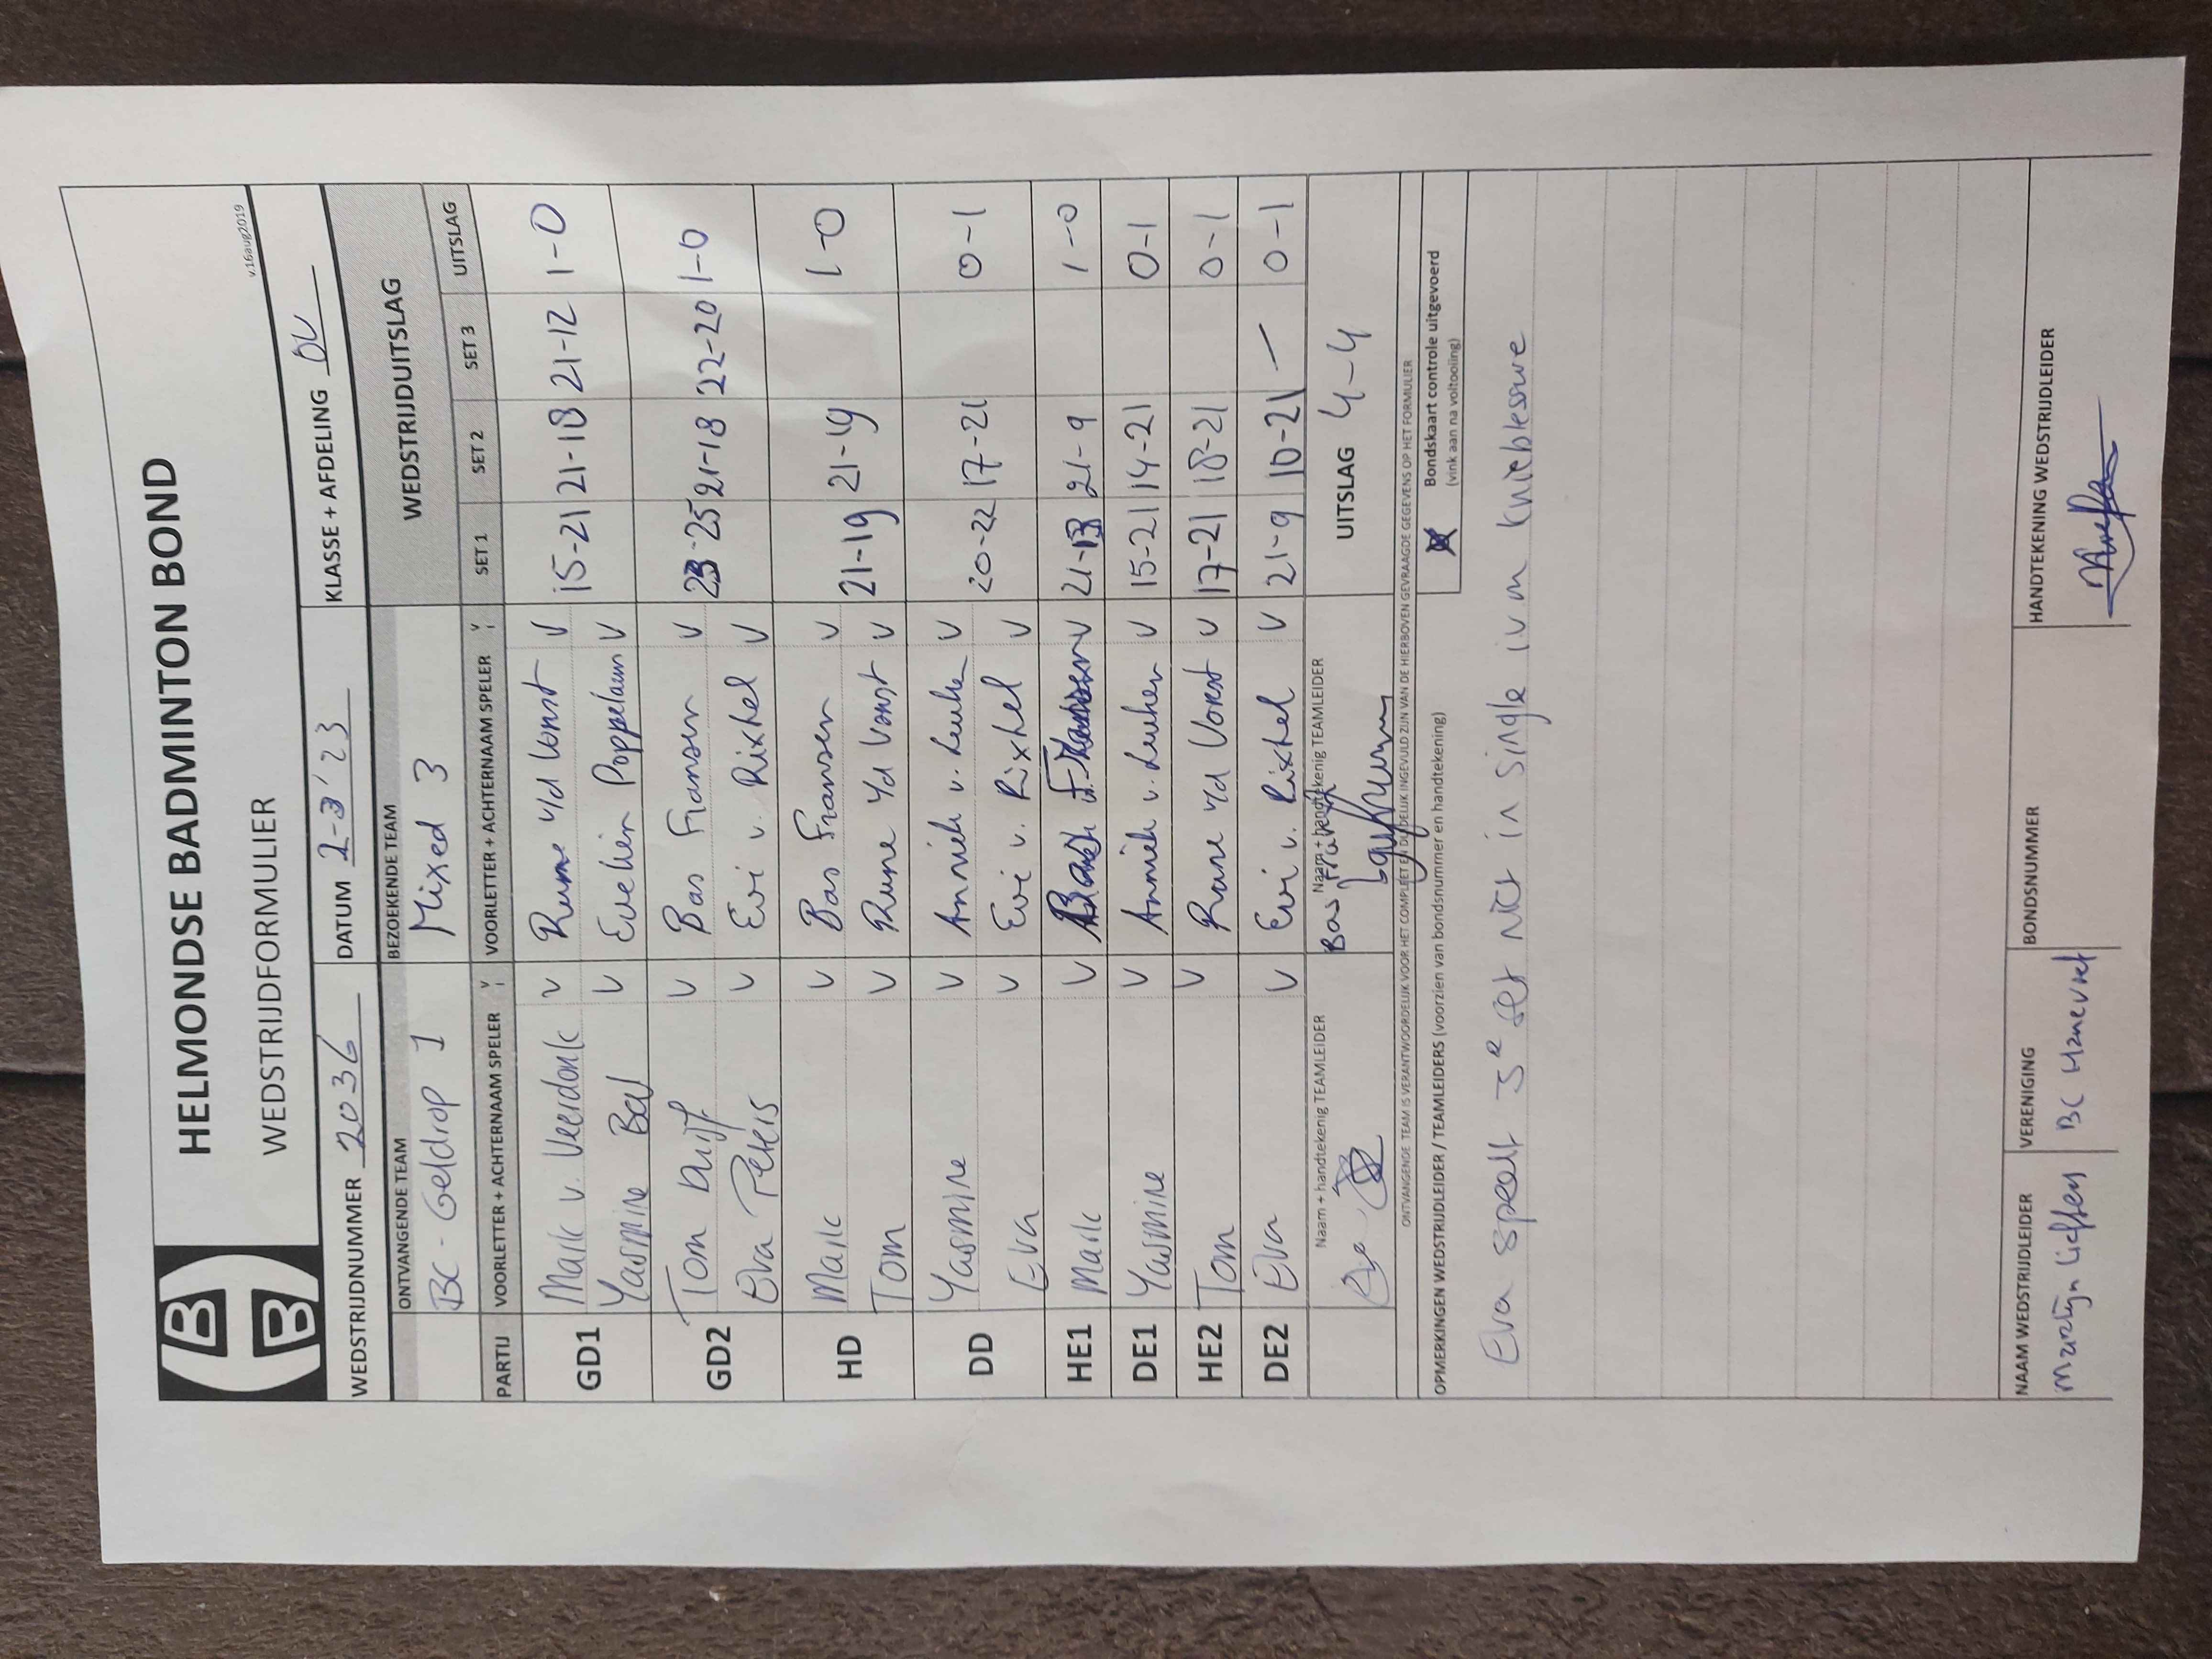 HELMONDSE BADMINTON BOND
WEDSTRIJDFORMULIER
v.16aug2019
WEDSTRIJDNUMMER 2036 DATUM 2-3-'23 KLASSE + AFDELING OV
ONTVANGENDE TEAM BEZOEKENDE TEAM WEDSTRIJDUITSLAG
BC-Geldrop 1 Mixed 3
PARTIJ VOORLETTER + ACHTERNAAM SPELER V VOORLETTER + ACHTERNAAM SPELER V SET 1 SET 2 SET 3 UITSLAG
GD1 Mark v. Veerdonk v Rune v/d Vorst v 15-21 21-18 21-12 1-0
Yasmine Bal v Evelien Poppelaars v
GD2 Tom Duijf v Bas Fransen v 23-25 21-18 22-20 1-0
Eva Peters v Evi v. Rixtel v
HD Mark v Bas Fransen v 21-19 21-19 1-0
Tom v Rune v/d Vorst v
DD Yasmine v Anniek v. Leuken v 20-22 17-21 0-1
Eva v Evi v. Rixtel v
HE1 Mark v Bas Fransen v 21-13 21-9 1-0
DE1 Yasmine v Anniek v. Leuken v 15-21 14-21 0-1
HE2 Tom v Rune v/d Vorst v 17-21 18-21 0-1
DE2 Eva v Evi v. Rixtel v 21-9 10-21 — 0-1
Naam + handtekenig TEAMLEIDER Naam + handtekenig TEAMLEIDER UITSLAG 4-4
Bas Fransen
ONTVANGENDE TEAM IS VERANTWOORDELIJK VOOR HET COMPLEET EN DUIDELIJK INGEVULD ZIJN VAN DE HIERBOVEN GEVRAAGDE GEGEVENS OP HET FORMULIER
OPMERKINGEN WEDSTRIJDLEIDER / TEAMLEIDERS (voorzien van bondsnummer en handtekening) Bondskaart controle uitgevoerd
(vink aan na voltooiing)
Eva speelt 3e set niet in single ivm knieblessure
NAAM WEDSTRIJDLEIDER VERENIGING BONDSNUMMER HANDTEKENING WEDSTRIJDLEIDER
Martijn Lieffers BC Hanevret